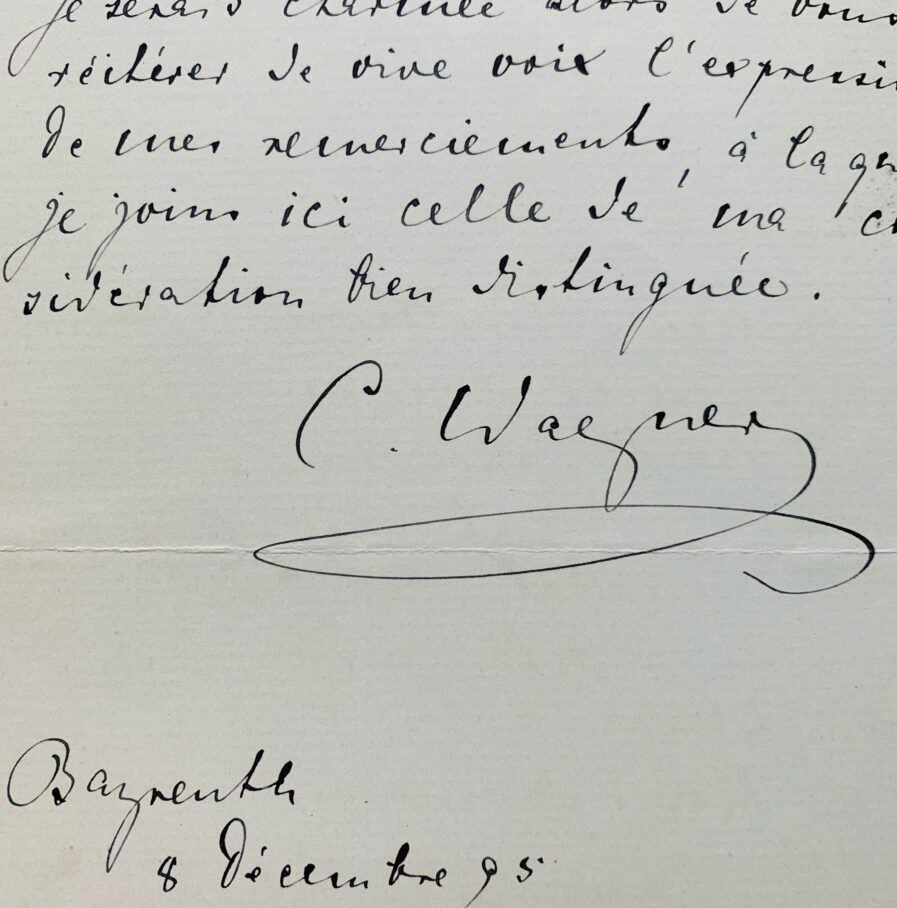 je serais charmée alors de vous
réitérer de vive voix l'expressi
de mes remerciements, à la qu
je joins ici celle de ma co
sidération bien distinguée.
C. Wagner
Bayreuth
8 Décembre 95